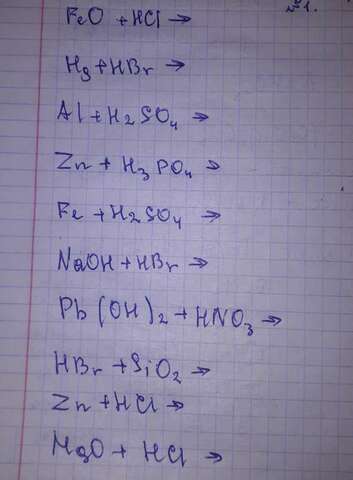 №1.
FeO + HCl →
Hg + HBr →
Al + H₂SO₄ →
Zn + H₃PO₄ →
Fe + H₂SO₄ →
NaOH + HBr →
Pb(OH)₂ + HNO₃ →
HBr + SiO₂ →
Zn + HCl →
MgO + HCl →